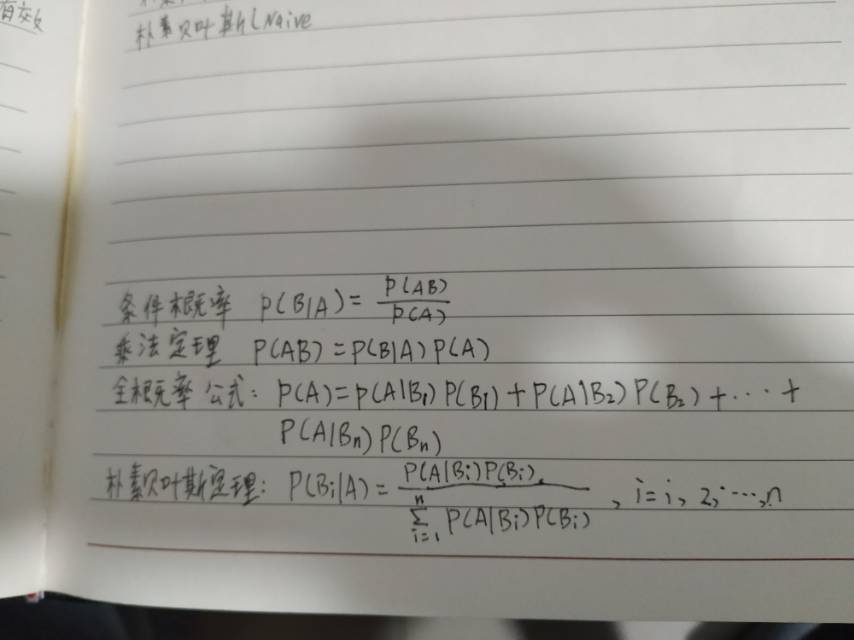 有效
朴素贝叶斯(Naive
条件概率 P(B|A) = P(AB) / P(A)
乘法定理 P(AB) = P(B|A) P(A)
全概率公式: P(A) = P(A|B₁) P(B₁) + P(A|B₂) P(B₂) + ··· +
P(A|Bn) P(Bn)
朴素贝叶斯定理: P(Bi|A) = P(A|Bi)P(Bi) / ∑ⁿᵢ₌₁ P(A|Bi)P(Bi) , i=i, 2, ···, n